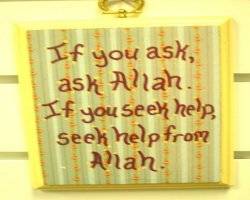 If you ask,
ask Allah.
If you seek help,
seek help from
Allah.